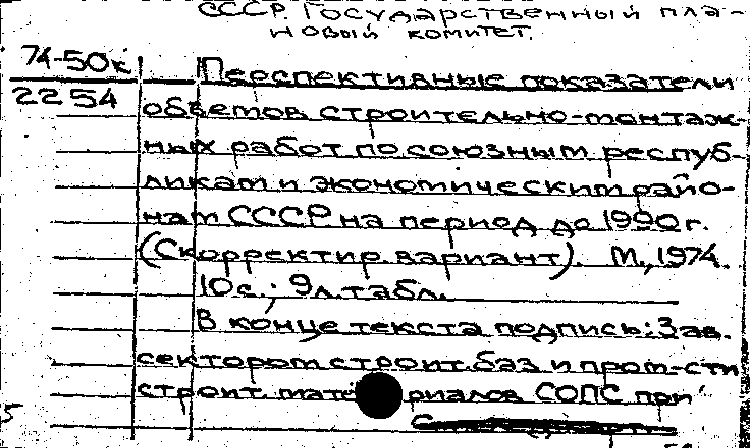 СССР. Государственный пла-
новый комитет.
74-50к Перспективные показатели
2254 объемов строительно-монтаж-
ных работ по союзным респуб-
ликам и экономическим райо-
нам СССР на период до 1990г.
(Скорректир. вариант). М., 1974.
10с.; 9л.табл.
В конце текста подпись: Зав.
сектором строит. баз и пром-сти
строит. материалов СОПС при